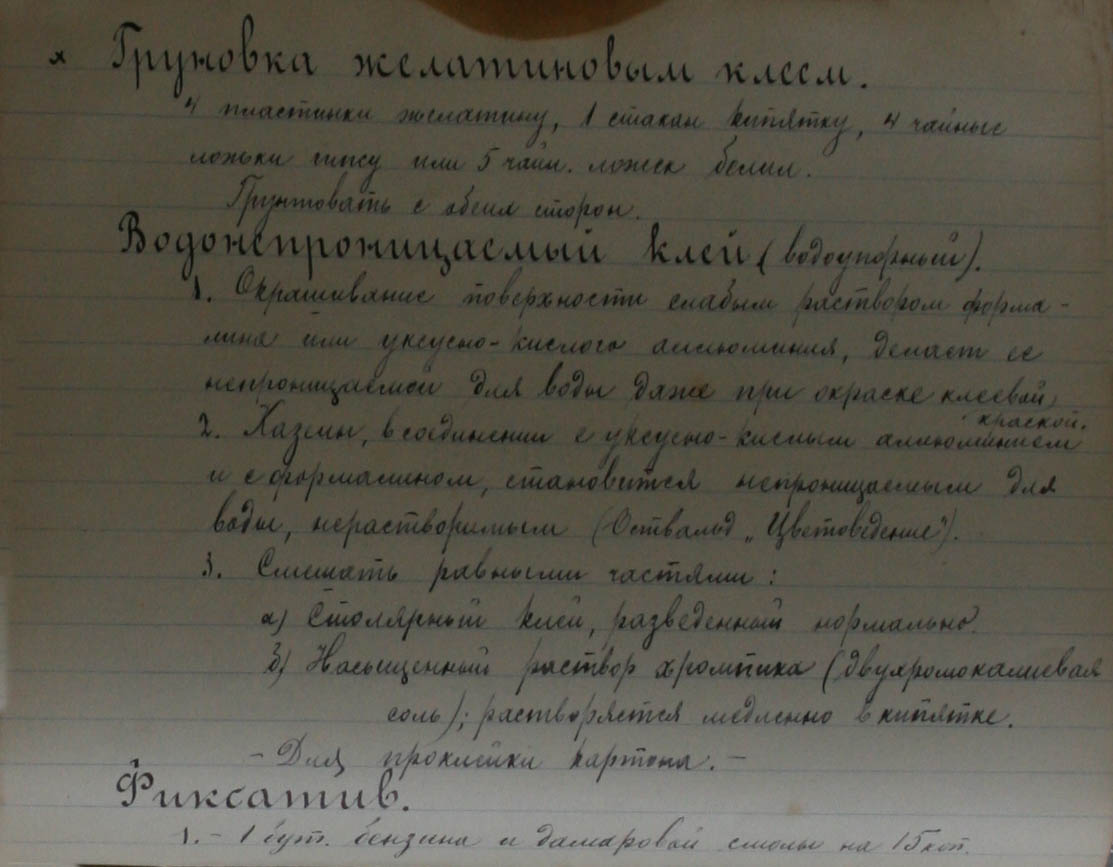 х Груновка желатиновым клеем.
4 пластинки желатину, 1 стакан кипятку, 4 чайные
ложки гипсу или 5 чайн. ложек белил.
Грунтовать с обеих сторон.
Водонепроницаемый клей (водоупорный).
1. Окрашивание поверхности слабым раствором форма-
лина или уксусно-кислого аллюминия, делает ее
непроницаемой для воды даже при окраске клеевой
краской.
2. Казеин, в соединении с уксусно-кислым аллюминием
и с формалином, становится непроницаемым для
воды, нерастворимым (Оствальд „Цветоведение").
3. Смешать равными частями:
а) Столярный клей, разведенный нормально.
б) Насыщенный раствор хромпика (двухромокалиевая
соль); растворяется медленно в кипятке.
– Для проклейки картона. –
Фиксатив.
1. – 1 бут. бензина и дамаровой смолы на 15 коп.